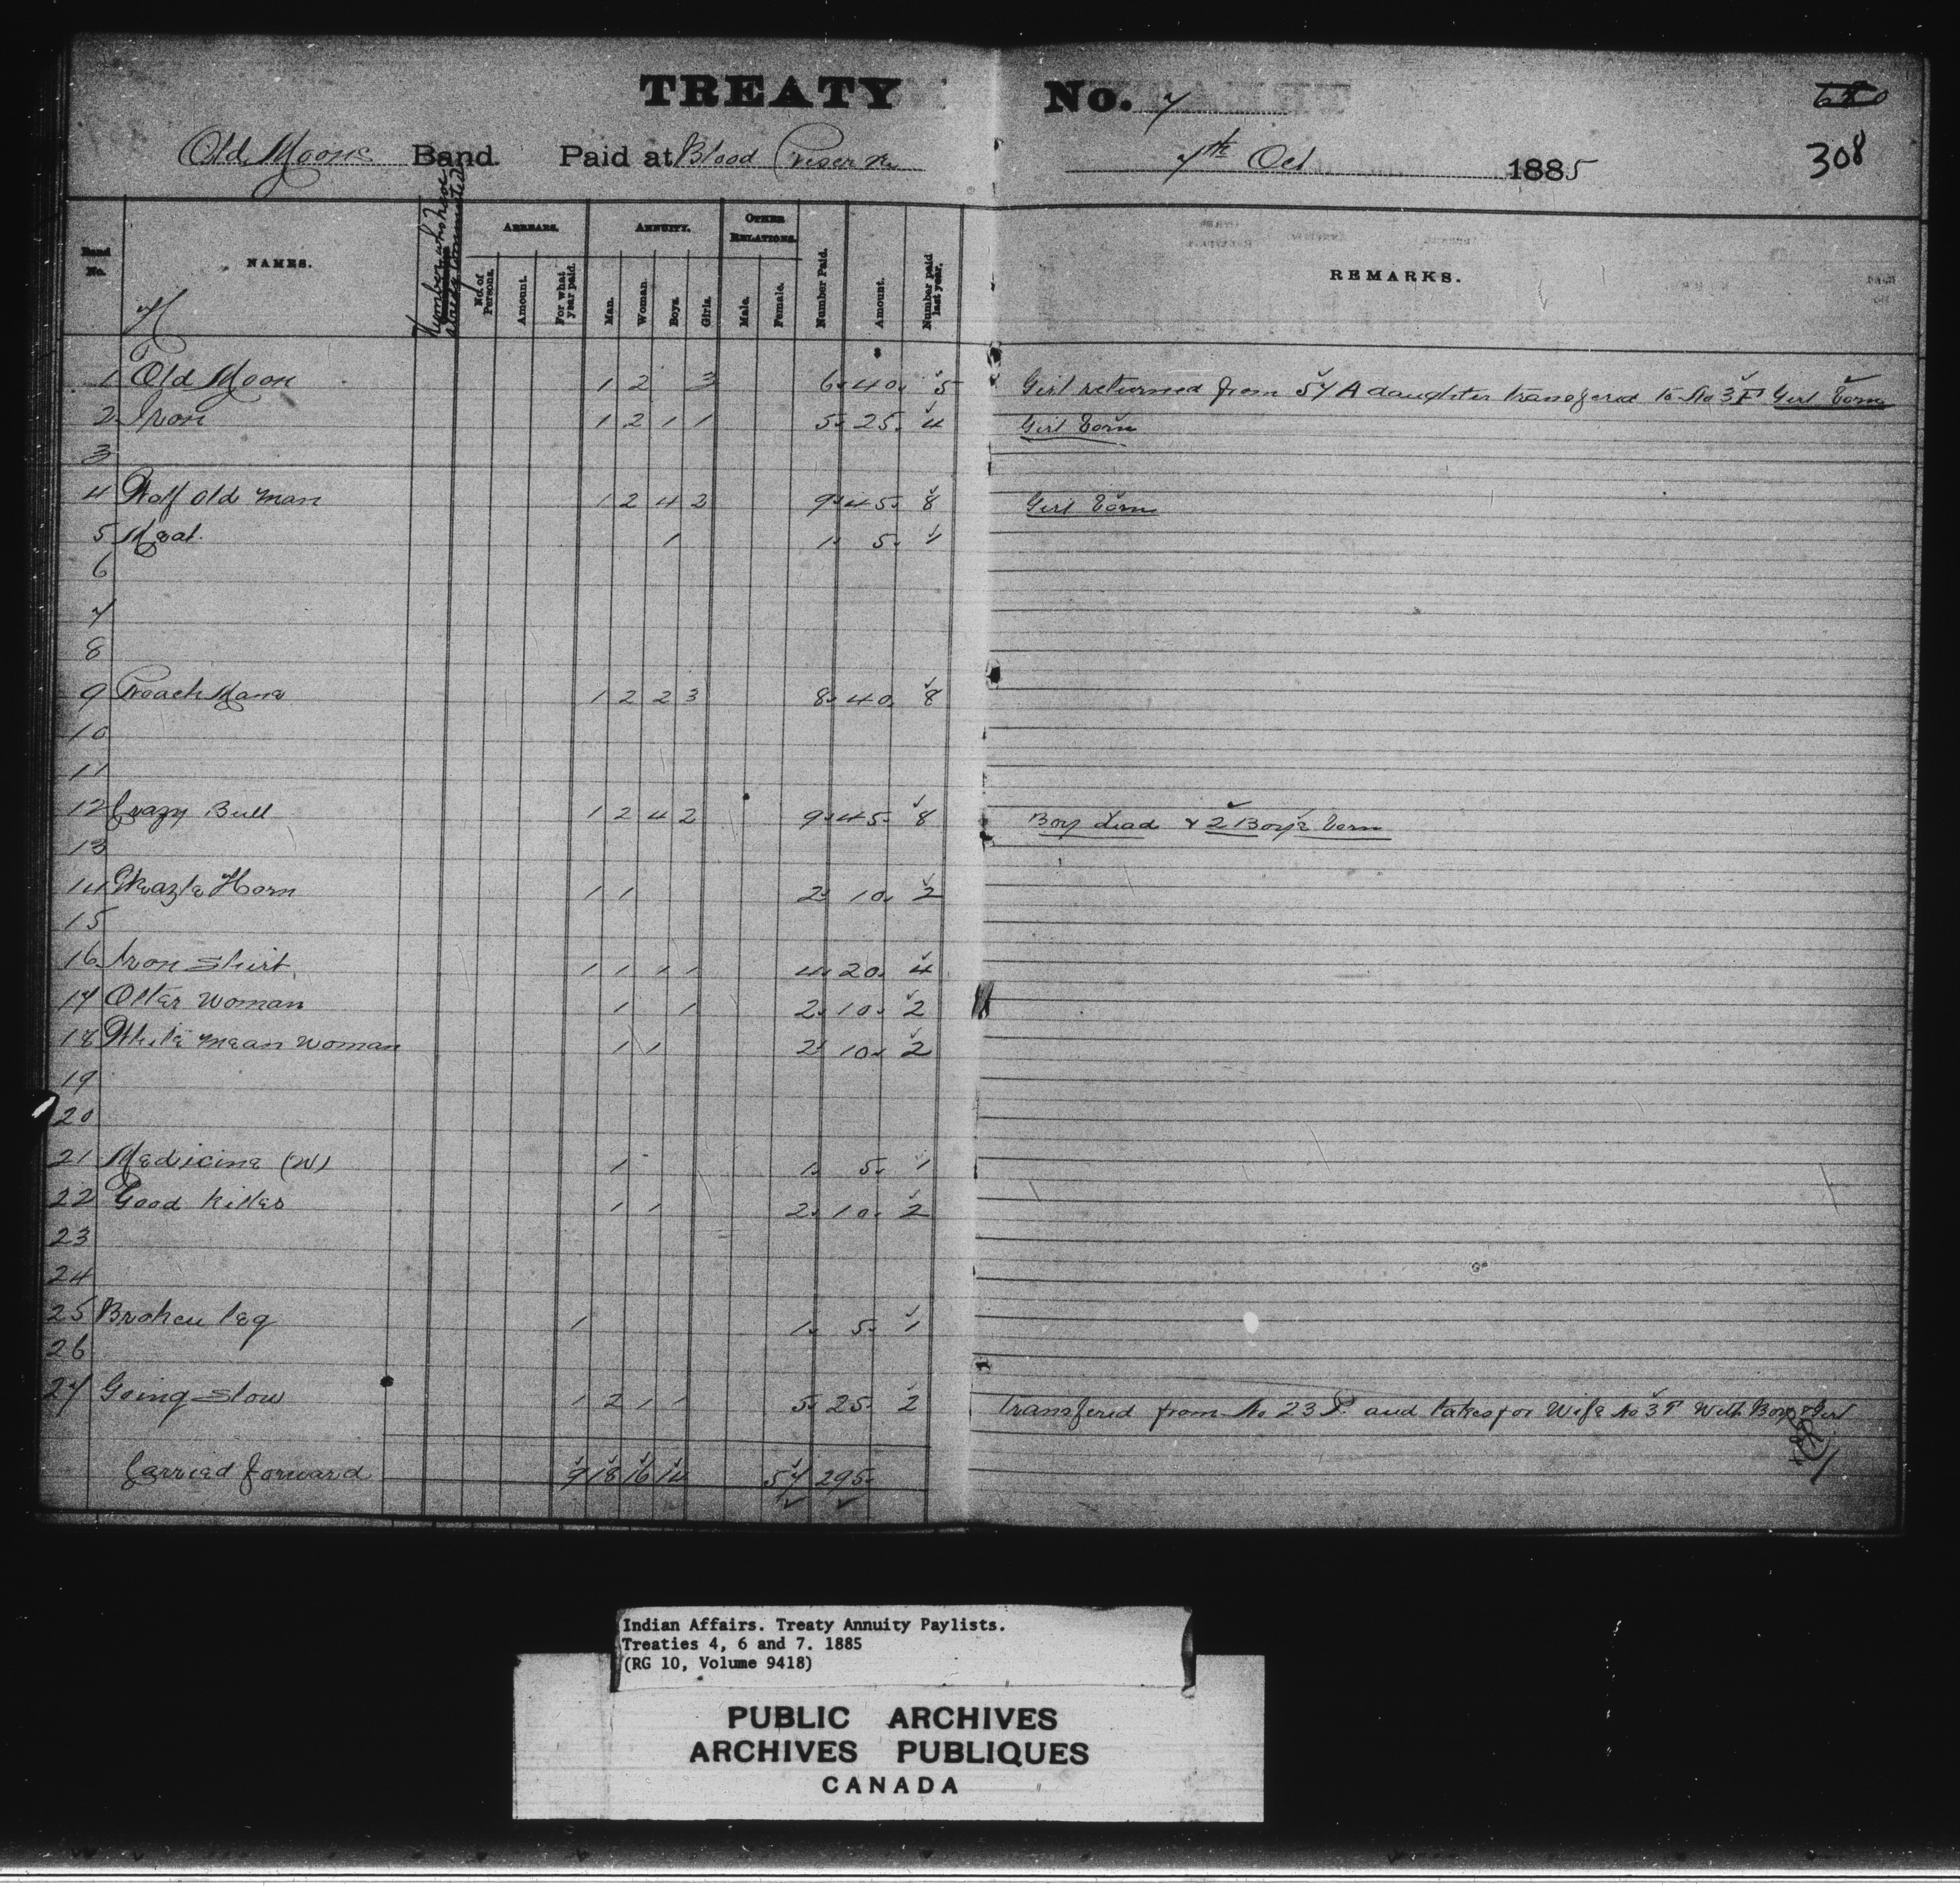 TREATY No. 7
680
Old Moons Band. Paid at Blood Reserve 7th Oct 1885
308
Band No.
NAMES.
Number who have
ARREARS.
No. of Persons.
Amount.
For what year paid.
ANNUITY.
Man.
Woman.
Boys.
Girls.
OTHER RELATIONS.
Male.
Female.
Number Paid.
Amount.
Number paid last year.
REMARKS.
H
$
1 Old Moon 1 2 3 6 40 5 Girl returned from 57 A daughter transfered to No 3 F Girl born
2 Iron 1 2 1 1 5 25 4 Girl born
3
4 Half old man 1 2 4 2 9 45 8 Girl born
5 Meat 1 1 5 1
6
7
8
9 Roach Mane 1 2 2 3 8 40 8
10
11
12 Crazy Bull 1 2 4 2 9 45 8 Boy dead & 2 Boys born
13
14 Weazle Horn 1 1 2 10 2
15
16 Iron Shirt 1 1 1 1 4 20 4
17 Otter woman 1 1 2 10 2
18 White mean woman 1 1 2 10 2
19
20
21 Medicine (W) 1 1 5 1
22 Good Killer 1 1 2 10 2
23
24
25 Broken leg 1 1 5 1
26
27 Going Slow 1 2 1 1 5 25 2 Transfered from No 23 P. and takes for Wife No 3 F With Boy & Girl
Carried forward 9 18 16 14 57 295
Indian Affairs. Treaty Annuity Paylists.
Treaties 4, 6 and 7. 1885
(RG 10, Volume 9418)
PUBLIC ARCHIVES
ARCHIVES PUBLIQUES
CANADA